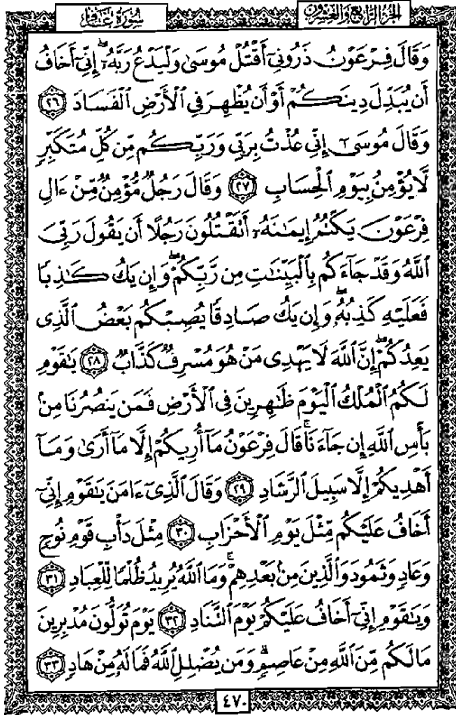 الجزء الرابع والعشرون
سورة غافر
وَقَالَ فِرْعَوْنُ ذَرُونِي أَقْتُلْ مُوسَىٰ وَلْيَدْعُ رَبَّهُۥٓ إِنِّي أَخَافُ
أَن يُبَدِّلَ دِينَكُمْ أَوْ أَن يُظْهِرَ فِي الْأَرْضِ الْفَسَادَ ٢٦
وَقَالَ مُوسَىٰٓ إِنِّي عُذْتُ بِرَبِّي وَرَبِّكُم مِّن كُلِّ مُتَكَبِّرٍ
لَّا يُؤْمِنُ بِيَوْمِ الْحِسَابِ ٢٧ وَقَالَ رَجُلٌ مُّؤْمِنٌ مِّنْ ءَالِ
فِرْعَوْنَ يَكْتُمُ إِيمَٰنَهُۥٓ أَتَقْتُلُونَ رَجُلًا أَن يَقُولَ رَبِّيَ
اللَّهُ وَقَدْ جَآءَكُم بِالْبَيِّنَٰتِ مِن رَّبِّكُمْ ۖ وَإِن يَكُ كَٰذِبًا
فَعَلَيْهِ كَذِبُهُۥ ۖ وَإِن يَكُ صَادِقًا يُصِبْكُم بَعْضُ الَّذِي
يَعِدُكُمْ ۖ إِنَّ اللَّهَ لَا يَهْدِي مَنْ هُوَ مُسْرِفٌ كَذَّابٌ ٢٨ يَٰقَوْمِ
لَكُمُ الْمُلْكُ الْيَوْمَ ظَٰهِرِينَ فِي الْأَرْضِ فَمَن يَنصُرُنَا مِنۢ
بَأْسِ اللَّهِ إِن جَآءَنَا ۚ قَالَ فِرْعَوْنُ مَآ أُرِيكُمْ إِلَّا مَآ أَرَىٰ وَمَآ
أَهْدِيكُمْ إِلَّا سَبِيلَ الرَّشَادِ ٢٩ وَقَالَ الَّذِيٓ ءَامَنَ يَٰقَوْمِ إِنِّيٓ
أَخَافُ عَلَيْكُم مِّثْلَ يَوْمِ الْأَحْزَابِ ٣٠ مِثْلَ دَأْبِ قَوْمِ نُوحٍ
وَعَادٍ وَثَمُودَ وَالَّذِينَ مِنۢ بَعْدِهِمْ ۚ وَمَا اللَّهُ يُرِيدُ ظُلْمًا لِّلْعِبَادِ ٣١
وَيَٰقَوْمِ إِنِّيٓ أَخَافُ عَلَيْكُمْ يَوْمَ التَّنَادِ ٣٢ يَوْمَ تُوَلُّونَ مُدْبِرِينَ
مَا لَكُم مِّنَ اللَّهِ مِنْ عَاصِمٍ ۗ وَمَن يُضْلِلِ اللَّهُ فَمَا لَهُۥ مِنْ هَادٍ ٣٣
٤٧٠